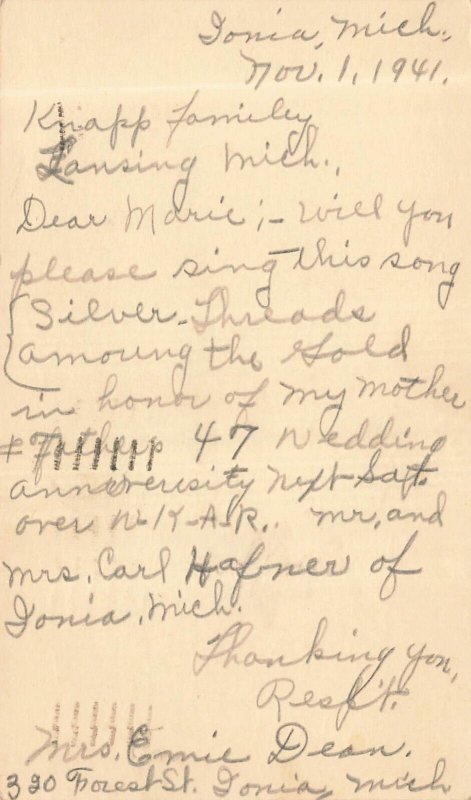 Ionia, Mich.
Nov. 1, 1941.
Knapp Familey
Lansing Mich.,
Dear Marie;- Will you
please sing this song
Silver-Threads
amoung the Gold
in honor of my mother
+ Fathers 47 wedding
anneveresity next Sat.
over W-K-A-R. Mr. and
Mrs. Carl Hafner of
Ionia, Mich.
Thanking you,
Resp't.
Mrs. Emie Dean.
320 Forest St. Ionia, Mich